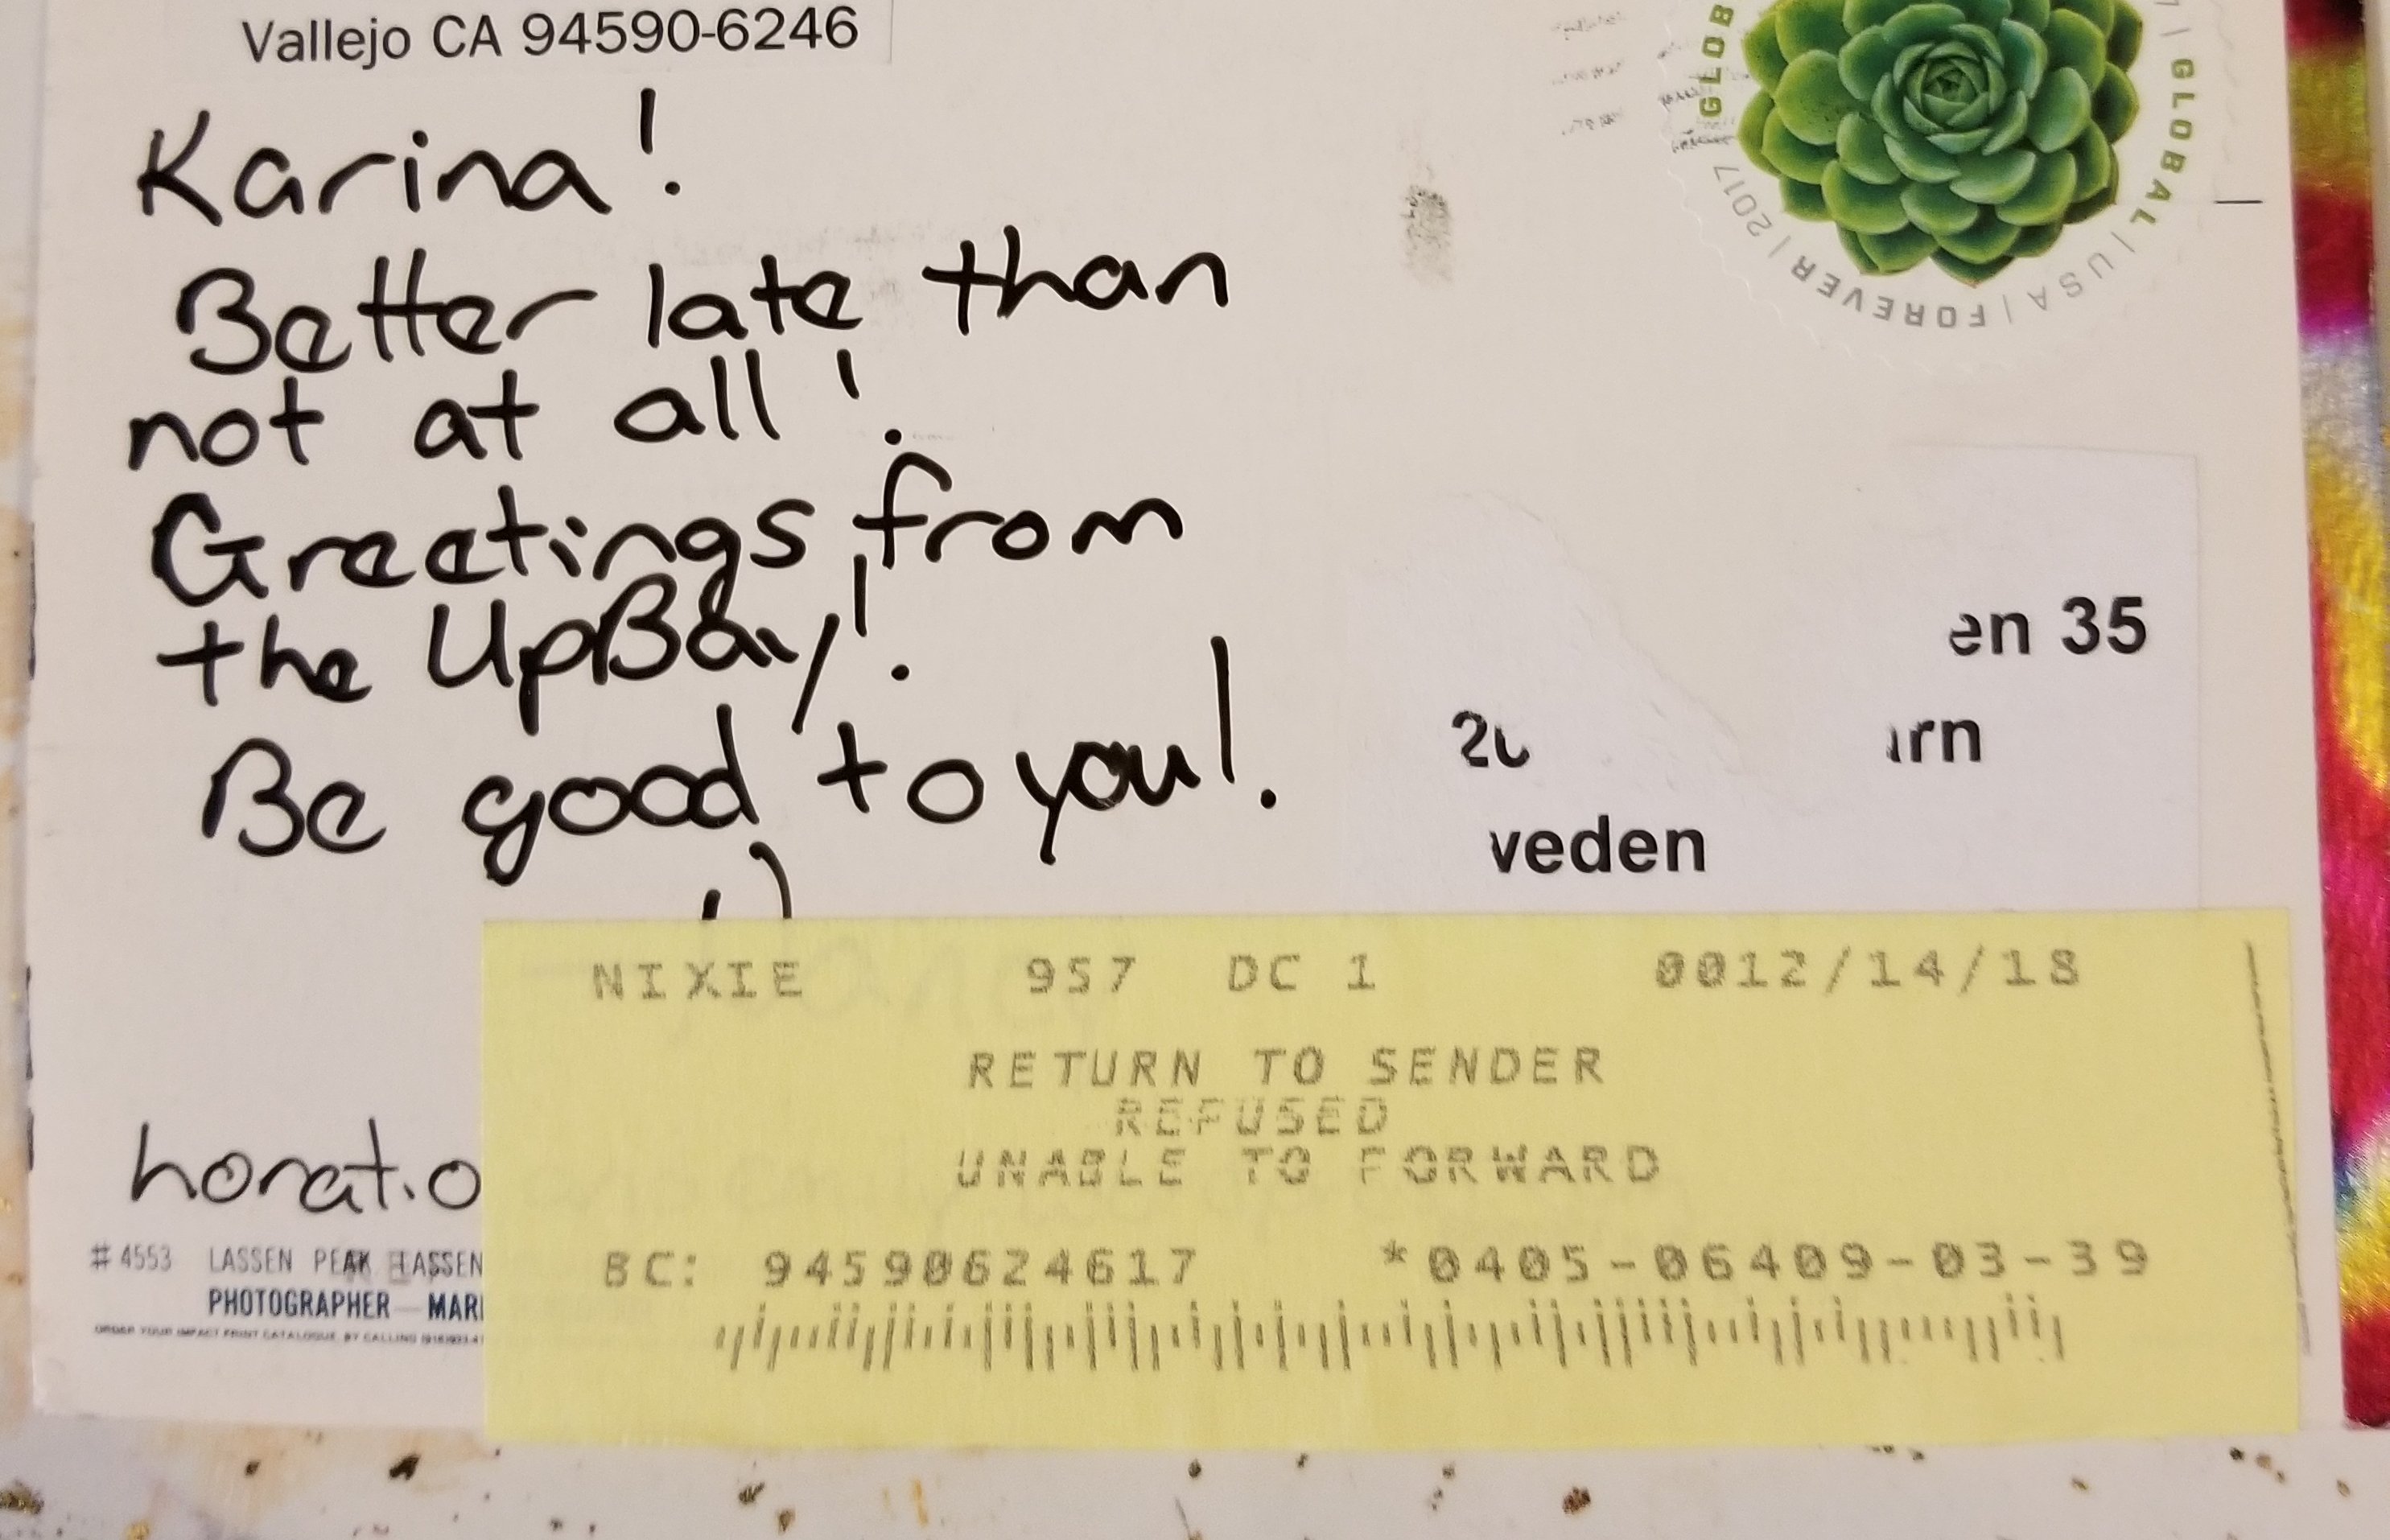 Vallejo CA 94590-6246
GLOBAL | USA | FOREVER | 2017 | GLOB
Karina!
Better late than
not at all!
Greetings from
the UpBay!
Be good to you!
:)
en 35
rn
veden
NIXIE 957 DC 1 0012/14/18
RETURN TO SENDER
REFUSED
UNABLE TO FORWARD
BC: 94590624617 *0405-06409-03-39
horat.o
#4553 LASSEN PEAK LASSEN
PHOTOGRAPHER MARI
ORDER YOUR IMPACT PRINT CATALOGUE BY CALLING